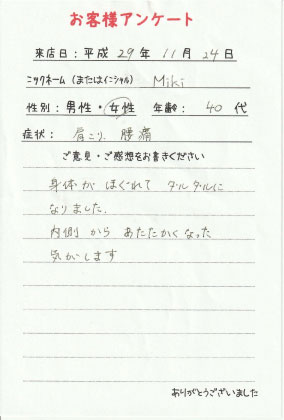 お客様アンケート
来店日：平成 29年 11月 24日
ニックネーム（またはイニシャル） Miki
性別：男性・女性 年齢： 40 代
症状： 肩こり、腰痛
ご意見・ご感想をお書きください
身体が ほぐれて ダルダルに
なりました。
内側 から あたたかくなった
気がします
ありがとうございました